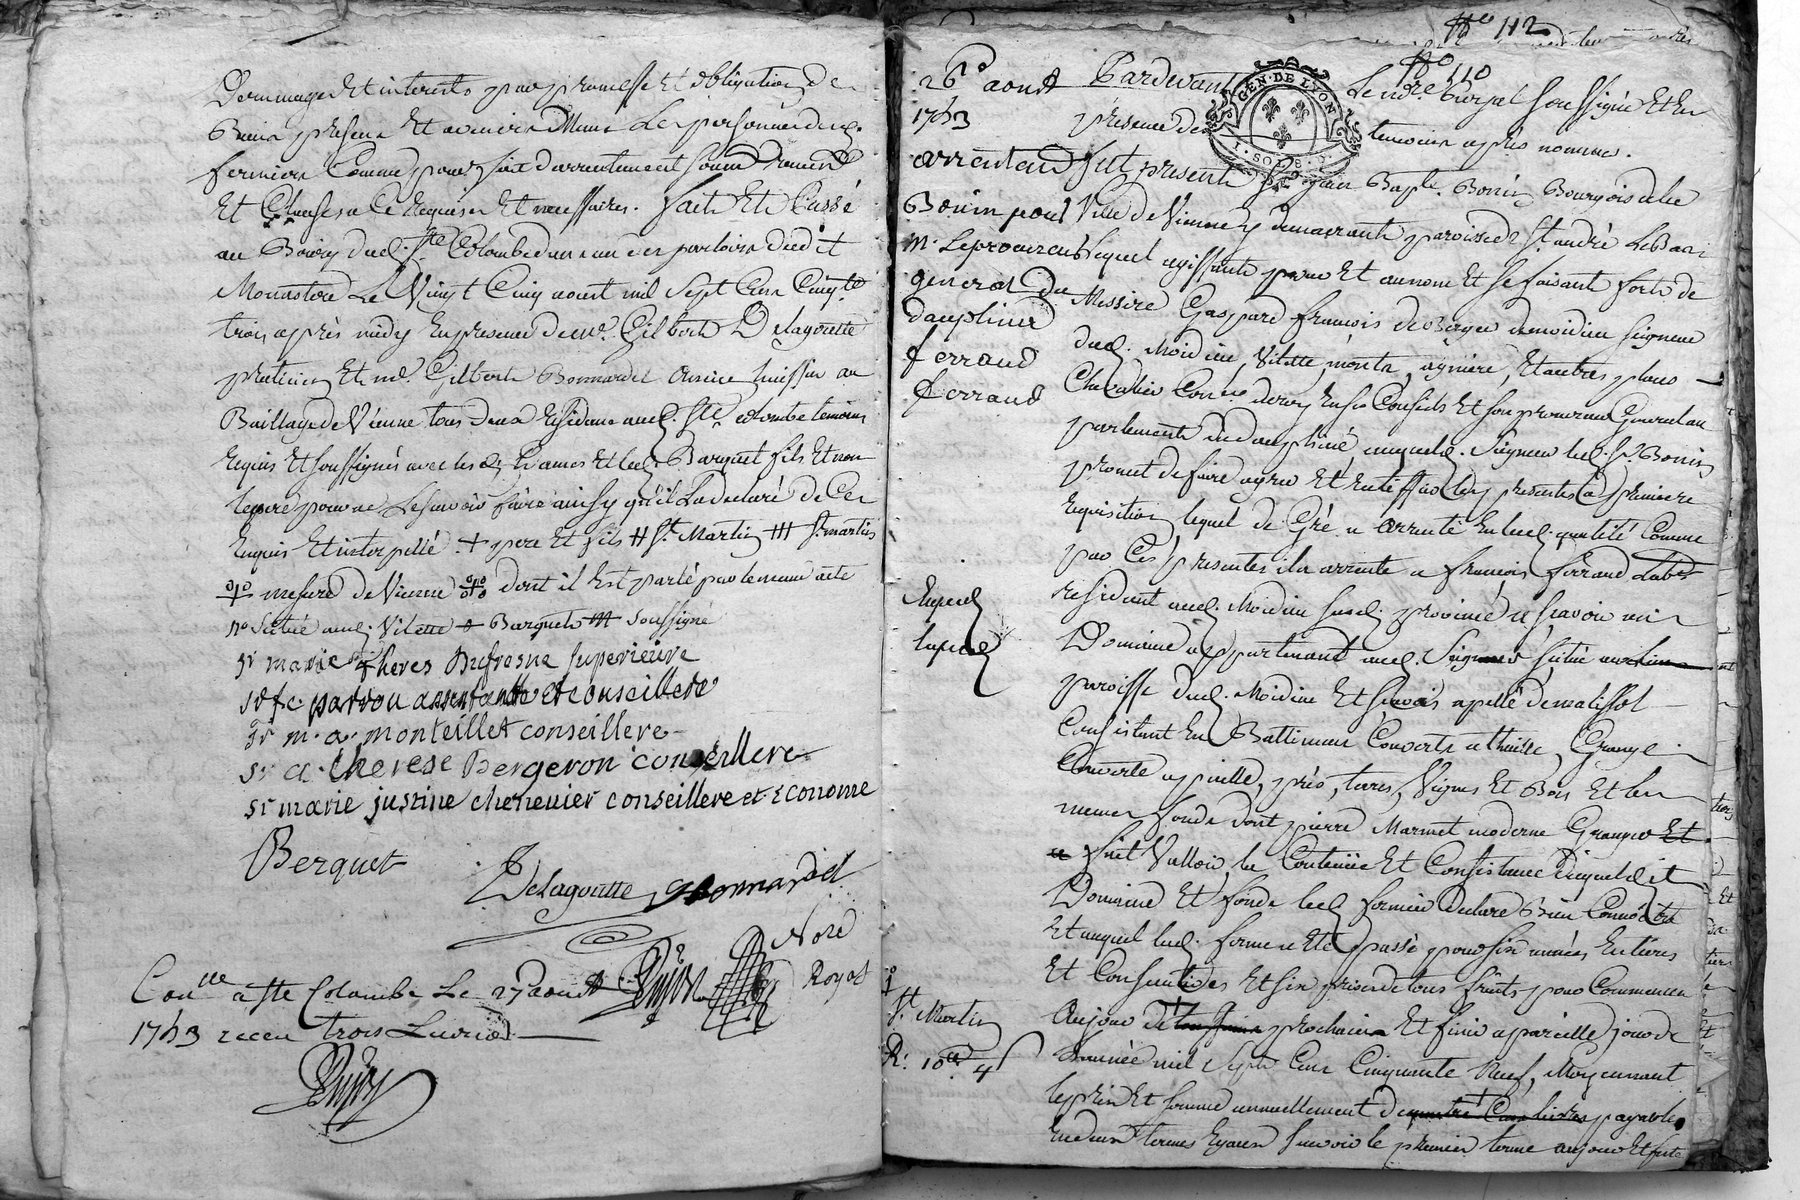 Dommages Et interests par promesse Et obligation de
Biens presens Et avenir Meme Les personnes desd.
fermiers Comme pour fait d'arrentement soumis renoncé
Et Clauses a ce Requises Et necessaires. fait Et Passé
au Bourg dud. Ste Colombe dans un des parloirs dudit
Monastere Le Vingt Cinq aoust mil Sept Cens Cinqte
trois après midy En presence de me. Gilbert Delagoutte
praticien Et me. Gilbert Bonnardel Ancien huissier au
Bailliage de Vienne tous deux Residans aud. Ste colombe temoins
Requis Et soussignés avec lesd. Dames Et led. Barquet fils Et non
le pere pour ne Le scavoir faire ainsy qu'il L'a declaré de Ce
Enquis Et interpellé. + pere Et fils # St. Martin ## St. martin
mesure de Vienne dont il Est parlé par le meme acte
no Situé aud. Vilette Barquet soussigné
sr marie Theres Dufresne superieure
assistante et conseillere
Sr m. a. monteillet conseillere
sr a. therese Bergeron conseillere
sr marie justine chenevier conseillere et Econome
Berquet
Delagoutte Bonnardel
Nore
Royal
Conlle a Ste Colombe Le 27 aoust
1753 receu trois Livres
No 112
No 110
26e aoust
1753
arrentend
Bonin pour
Mr. Le procureur
general du
dauphiné
ferraud
ferraud
GEN. DE LYON
1. SOL 8. D.
Pardevant Le nore. Royal soussigné Et En
presence des temoins après nommés.
fut present Sr. jean Bapte. Bonin Bourgeois de la
Ville de Vienne y demeurant paroisse de St. andré Le Bas
Lequel agissant pour Et au nom Et se faisant fort de
Messire Gaspard françois de Berger de moidieu seigneur
dud. Moidieu, Vilette, Et autres places
Chevalier Coner du roy En ses Conseils Et son procureur General au
parlement de dauphiné auquel Seigneur led. Sr. Bonin
promet de faire agreer Et Ratiffier les presentes a premiere
Requisition lequel de Gré a arrenté En lad. qualité Comme
par Ces presentes il a arrenté a françois ferraud
residant aud. Moidieu susd. province a scavoir un
Domaine appartenant aud. Seigneur Situé
paroisse dud. Moidieu Et apellé de malissol
Consistant En Battimens Couverts a thuile, Grange
Couverte a paille, prés, terres, Vignes Et Bois Et les
memes fonds dont pierre Marmet moderne Granger
fait Valloir, la Contenüe Et Consistance duquel dit
Domaine Et fonds led. fermier declare Bien Connoître
Et auquel lad. ferme a Eté passée pour six années Entieres
Et Consecutives Et six prises de tous fruits pour Commencer
Au jour de prochain Et finir a pareille jour de
L'année mil Sept Cens Cinquante Neuf, Moyennant
le prix Et somme annuellement de quatre Cens livres payable
En deux termes Egaux scavoir le premier terme au jour Et feste
St. Martin
R: 10